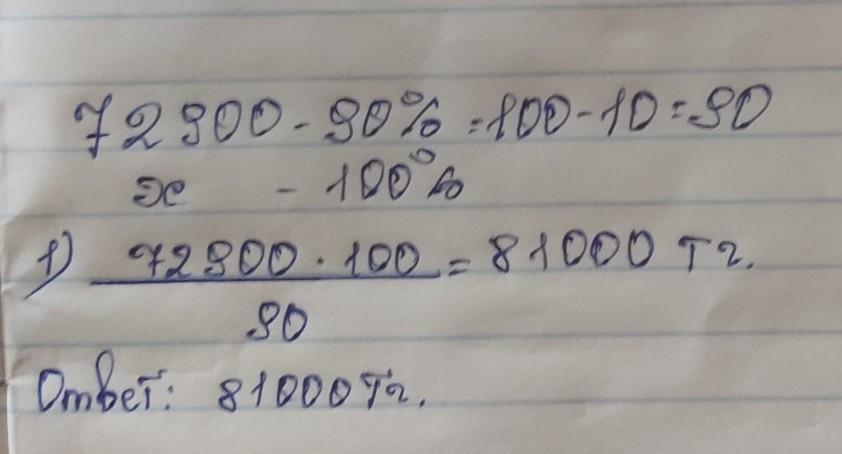 72900 - 90% = 100 - 10 = 90
x - 100%
1) 72900 · 100 = 81000 тг.
90
Ответ: 81000 тг.